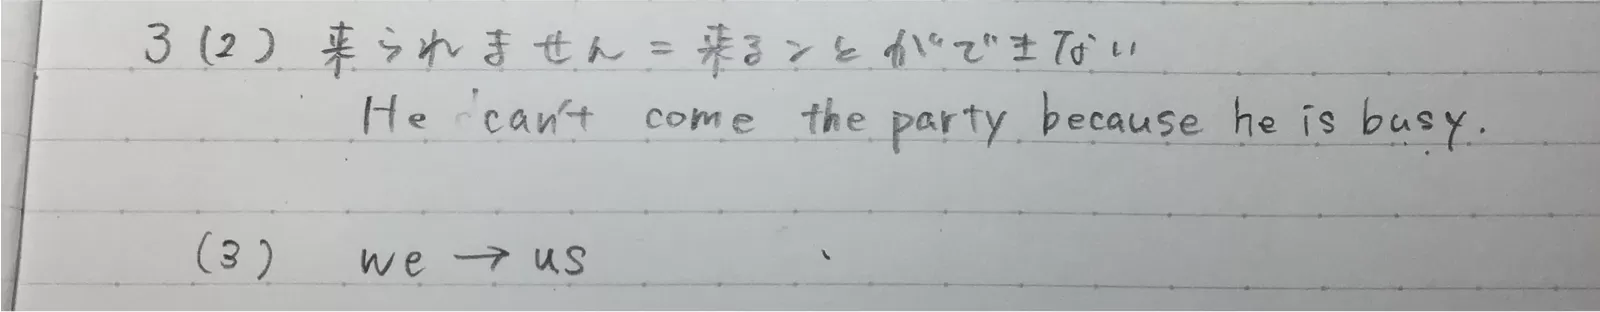 3 (2) 来られません = 来ることができない
He can't come the party because he is busy.
(3) we → us